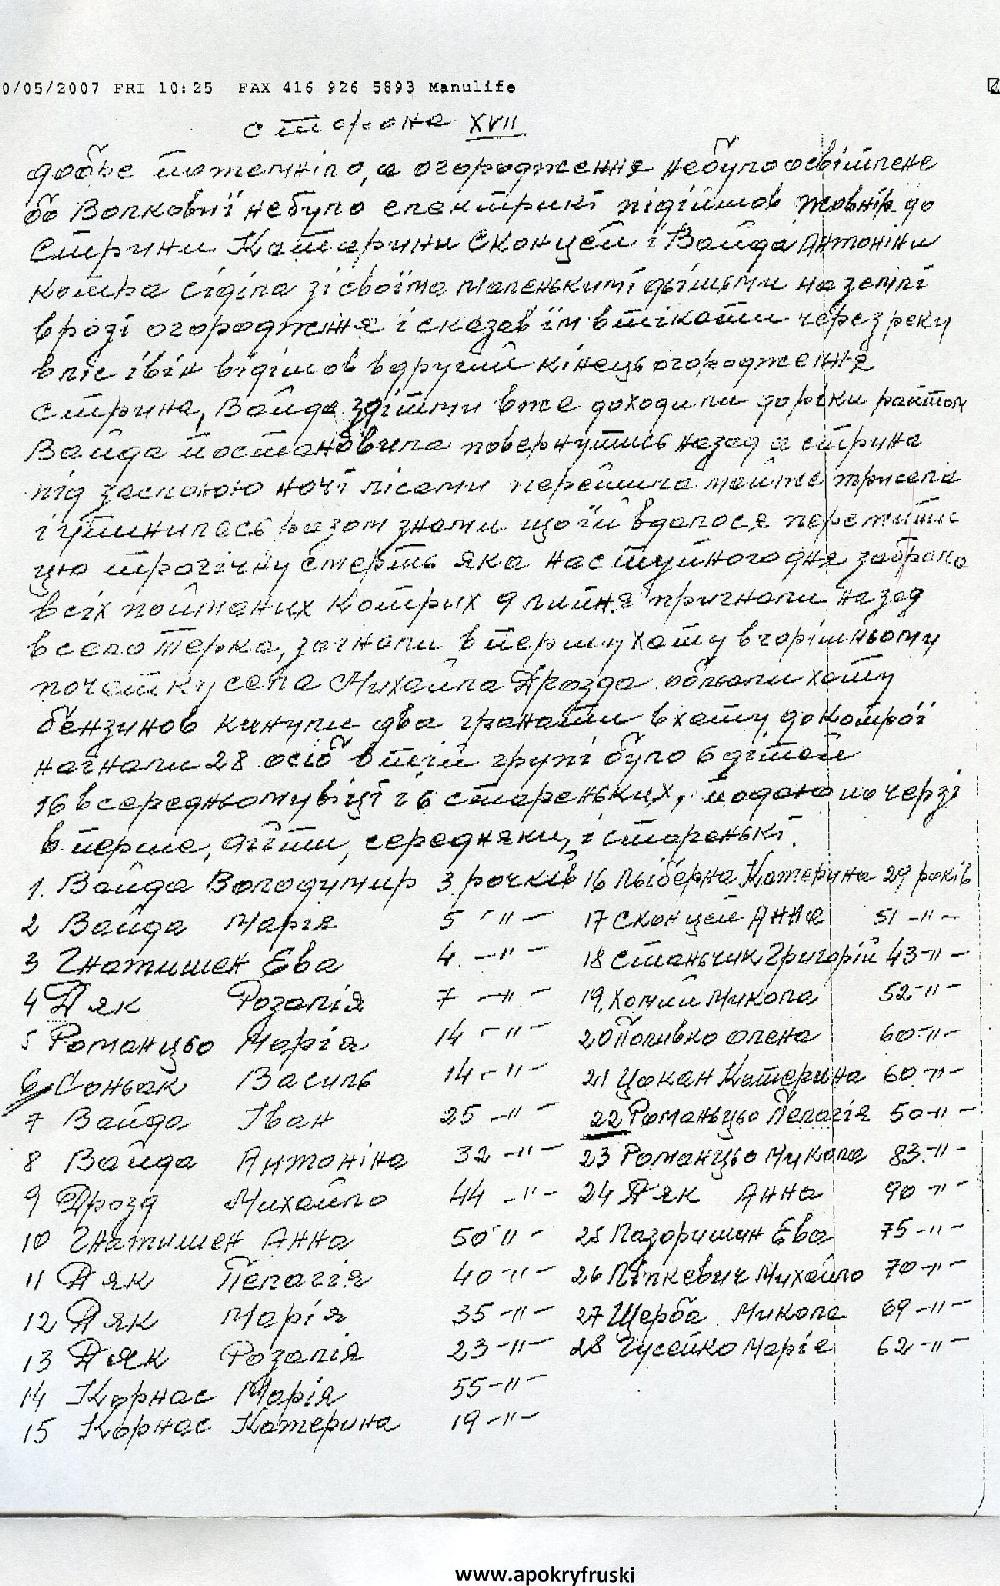 0/05/2007 FRI 10:25 FAX 416 926 5893 Manulife
сторона XVII
добре потемніло, а огородження небуло освітлене
бо Волковиї небуло електрикі підійшов жовнір до
Стрини Катарини Сконцей і Вайда Антоніни
котра сіділа зі своїма маленькимі дітьми на землі
врозі огородження і сказав їм втікати через реку
вліс івін відійшов вдругий кінець огородження
стрина, Вайда здітьми вже доходили доріки раптом
Вайда постановила повернутись назад а стрина
під заслоною ночі лісами перейшла майже трисела
і знами що їй вдалося пережити
цю трагічну смерть яка наступного дня забрала
всіх пойманих котрих 9 липня пригнали назад
всело Терка, загнали в першу хату вгорішньому
початку села Михайла Дрозда облили хату
бензинов кинули два гранати вхату до котрої
нагнали 28 осіб в тій групі було 6 дітей
16 всередньому віці і 6 стареньких, подаю по черзі
в перше, діти, середняки, і старенькі.
1. Вайда Володимир 3 рочків 16 Лыберна Катерина 29 років
2 Вайда Марія 5 -"- 17 Сконцей Анна 51 -"-
3 Гнатишек Ева 4 -"- 18 Станьчик Григорій 43 -"-
4 Дяк Розалія 7 -"- 19 Хомин Микола 52 -"-
5 Романцьо Марія 14 -"- 20 Поливко Олена 60 -"-
6 Соньак Василь 14 -"- 21 Цокан Катерина 60 -"-
7 Вайда Іван 25 -"- 22 Романьцьо Пелагія 50 -"-
8 Вайда Антоніна 32 -"- 23 Романцьо Микола 83 -"-
9 Дрозд Михайло 44 -"- 24 Дяк Анна 90 -"-
10 Гнатишек Анна 50 -"- 25 Лазоришин Ева 75 -"-
11 Дяк Пелагія 40 -"- 26 Літкевич Михайло 70 -"-
12 Дяк Марія 35 -"- 27 Щерба Микола 69 -"-
13 Дяк Розалія 23 -"- 28 Гусейко Марія 62 -"-
14 Корнас Марія 55 -"-
15 Корнас Катерина 19 -"-
www.apokryfruski